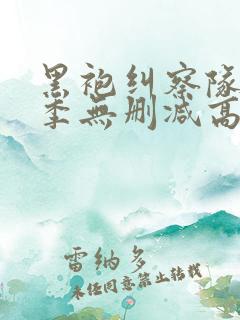 黑袍纠察队
季無删减高
雷纳多
未经同意禁止转载